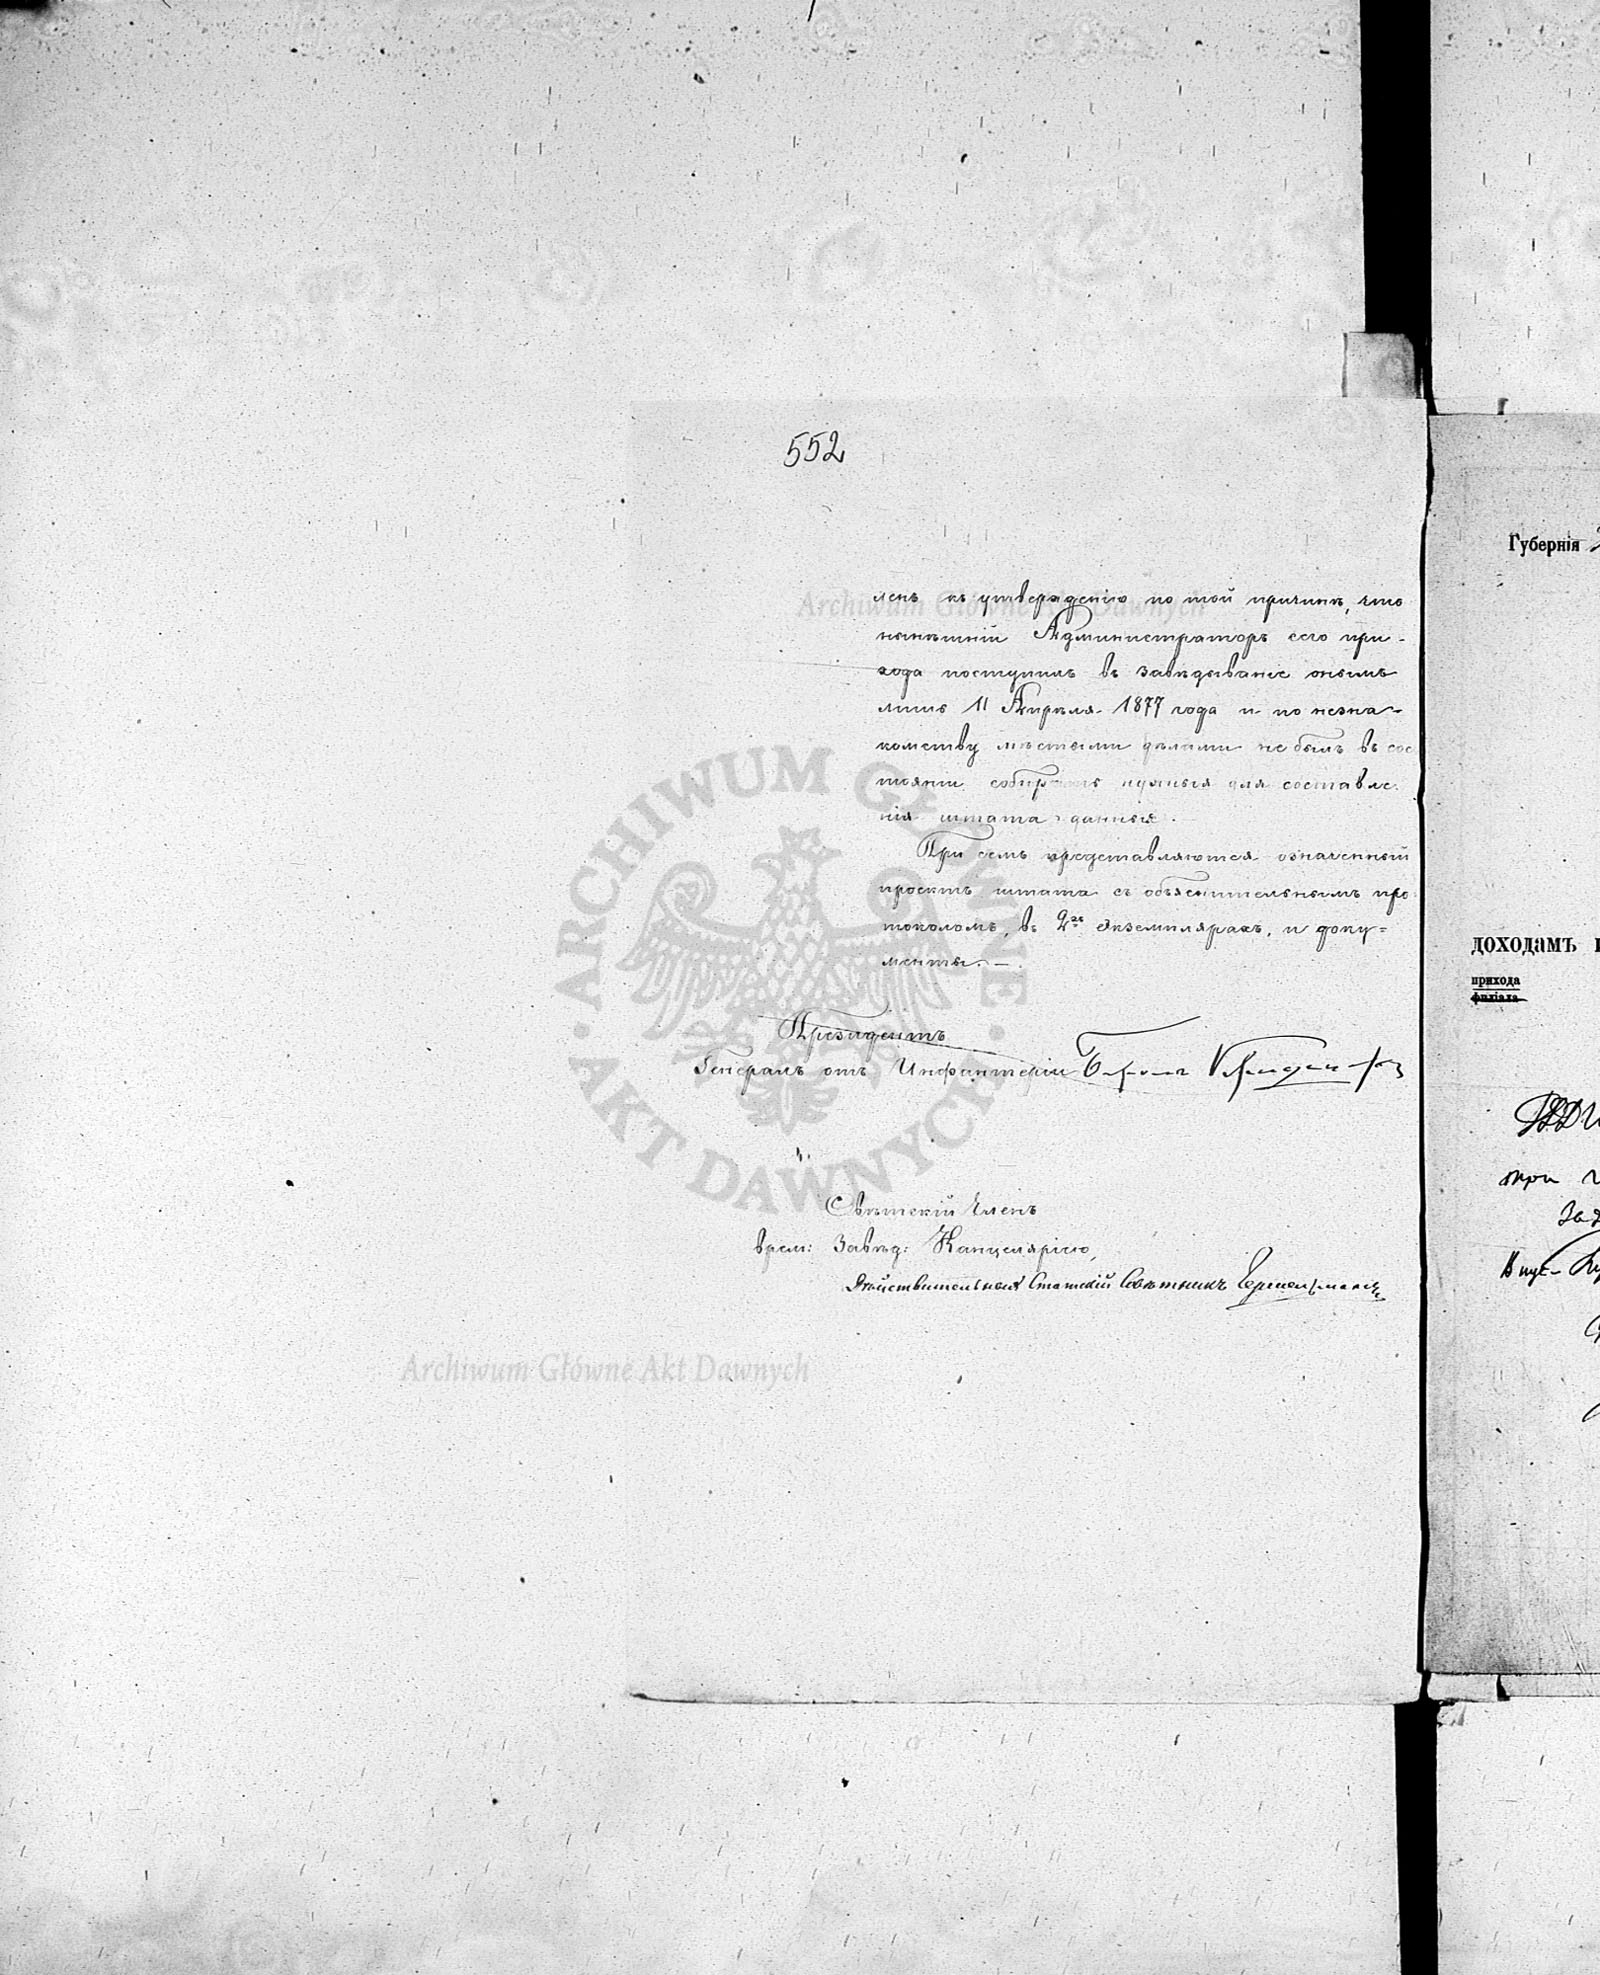 552
ленъ къ утвержденію по той причинѣ, что
нынѣшній Администраторъ сего при-
хода поступилъ въ завѣдываніе онымъ
лишь 11 Апрѣля 1877 года и по незна-
комству мѣстными дѣлами не былъ въ сос
тояніи собирать нужныя для составле
нія штата данныя.
При семъ представляются означенный
проектъ штата съ объяснительнымъ про
токоломъ, въ 2хъ экземплярахъ, и доку=
менты.
Президентъ
Генералъ отъ Инфантеріи Баронъ
Свѣтскій Членъ
врем: Завѣд: Канцеляріею,
Дѣйствительный Статскій Совѣтникъ
Губернія
доходамъ
прихода
филіала
при
ARCHIWUM GŁÓWNE AKT DAWNYCH
Archiwum Główne Akt Dawnych
Archiwum Główne Akt Dawnych